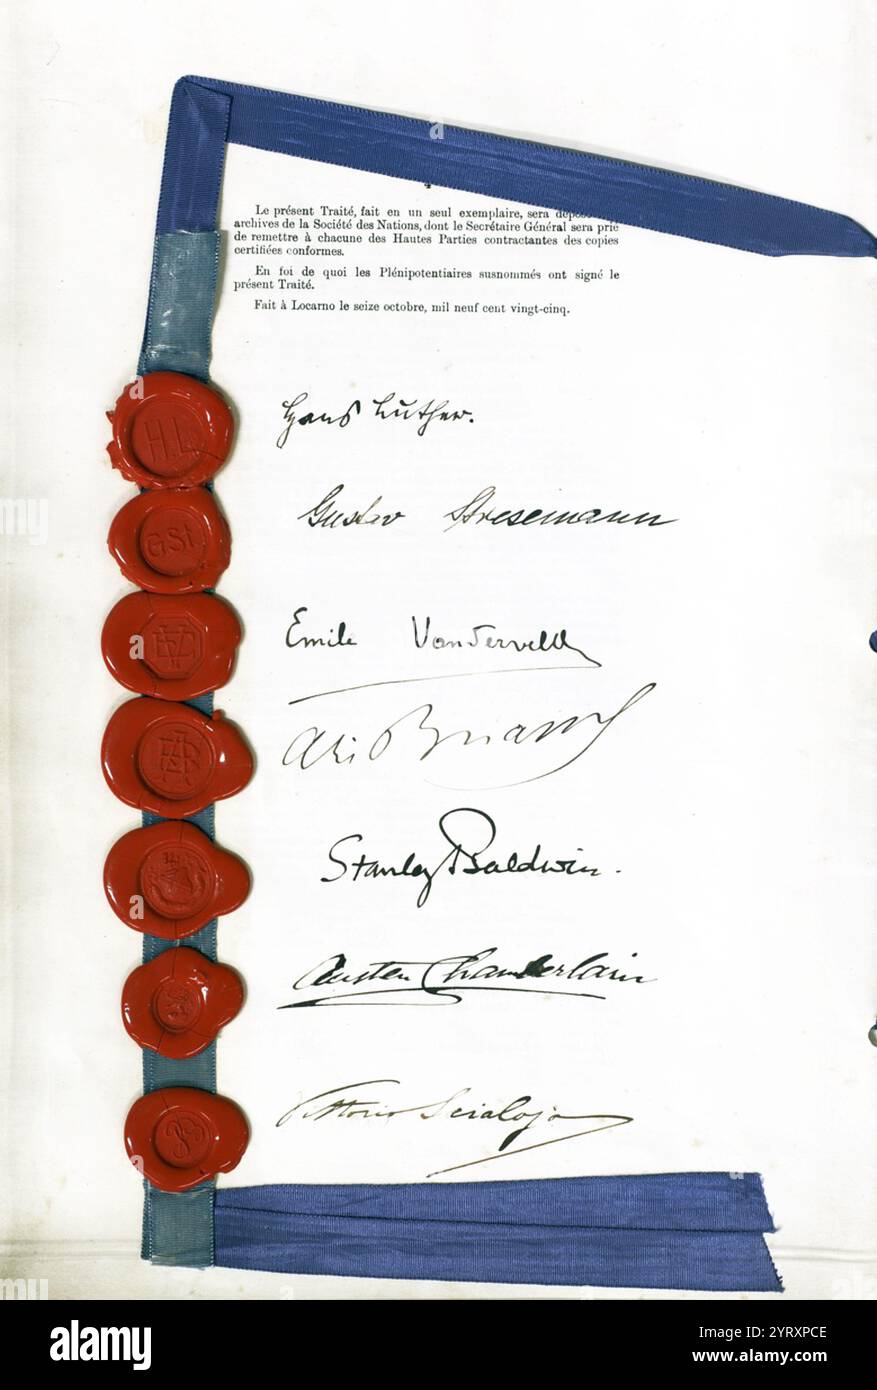 Le présent Traité, fait en un seul exemplaire, sera déposé
archives de la Société des Nations, dont le Secrétaire Général sera prié
de remettre à chacune des Hautes Parties contractantes des copies
certifiées conformes.
En foi de quoi les Plénipotentiaires susnommés ont signé le
présent Traité.
Fait à Locarno le seize octobre, mil neuf cent vingt-cinq.
H.L
Hans Luther.
GSt
Gustav Stresemann
Emile Vandervelde
Ari Briand
Stanley Baldwin.
Austen Chamberlain
Vittorio Scialoja
a
a
a
alamy
Image ID: 2YRXPCE
www.alamy.com